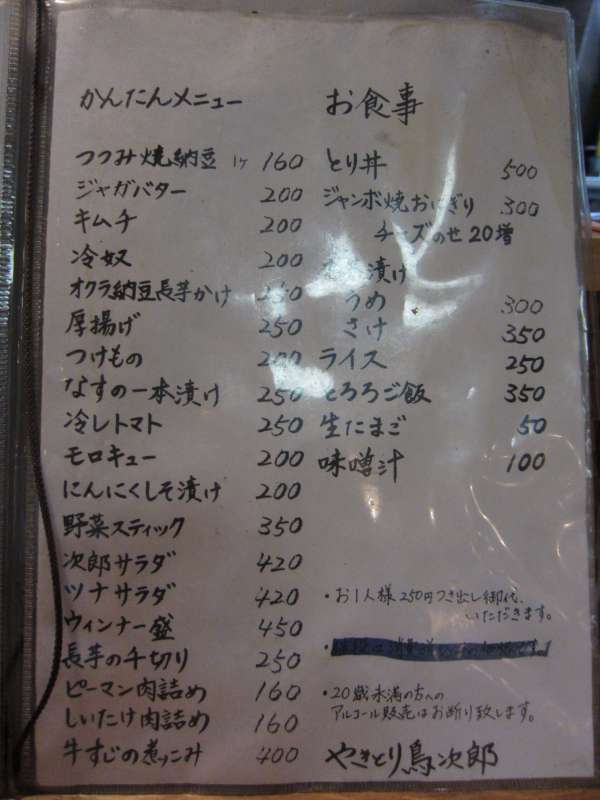 かんたんメニュー
つつみ焼納豆 1ケ 160
ジャガバター 200
キムチ 200
冷奴 200
オクラ納豆長芋かけ
厚揚げ 250
つけもの 200
なすの一本漬け 250
冷しトマト 250
モロキュー 200
にんにくしそ漬け 200
野菜スティック 350
次郎サラダ 420
ツナサラダ 420
ウィンナー盛 450
長芋の千切り 250
ピーマン肉詰め 160
しいたけ肉詰め 160
牛すじの煮っこみ 400
お食事
とり丼 500
ジャンボ焼おにぎり 300
チーズのせ 20増
漬け
うめ 300
さけ 350
ライス 250
とろろご飯 350
生たまご 50
味噌汁 100
・お1人様250円つき出し御代、
いただきます。
・20歳未満の方への
アルコール販売はお断り致します。
やきとり鳥次郎